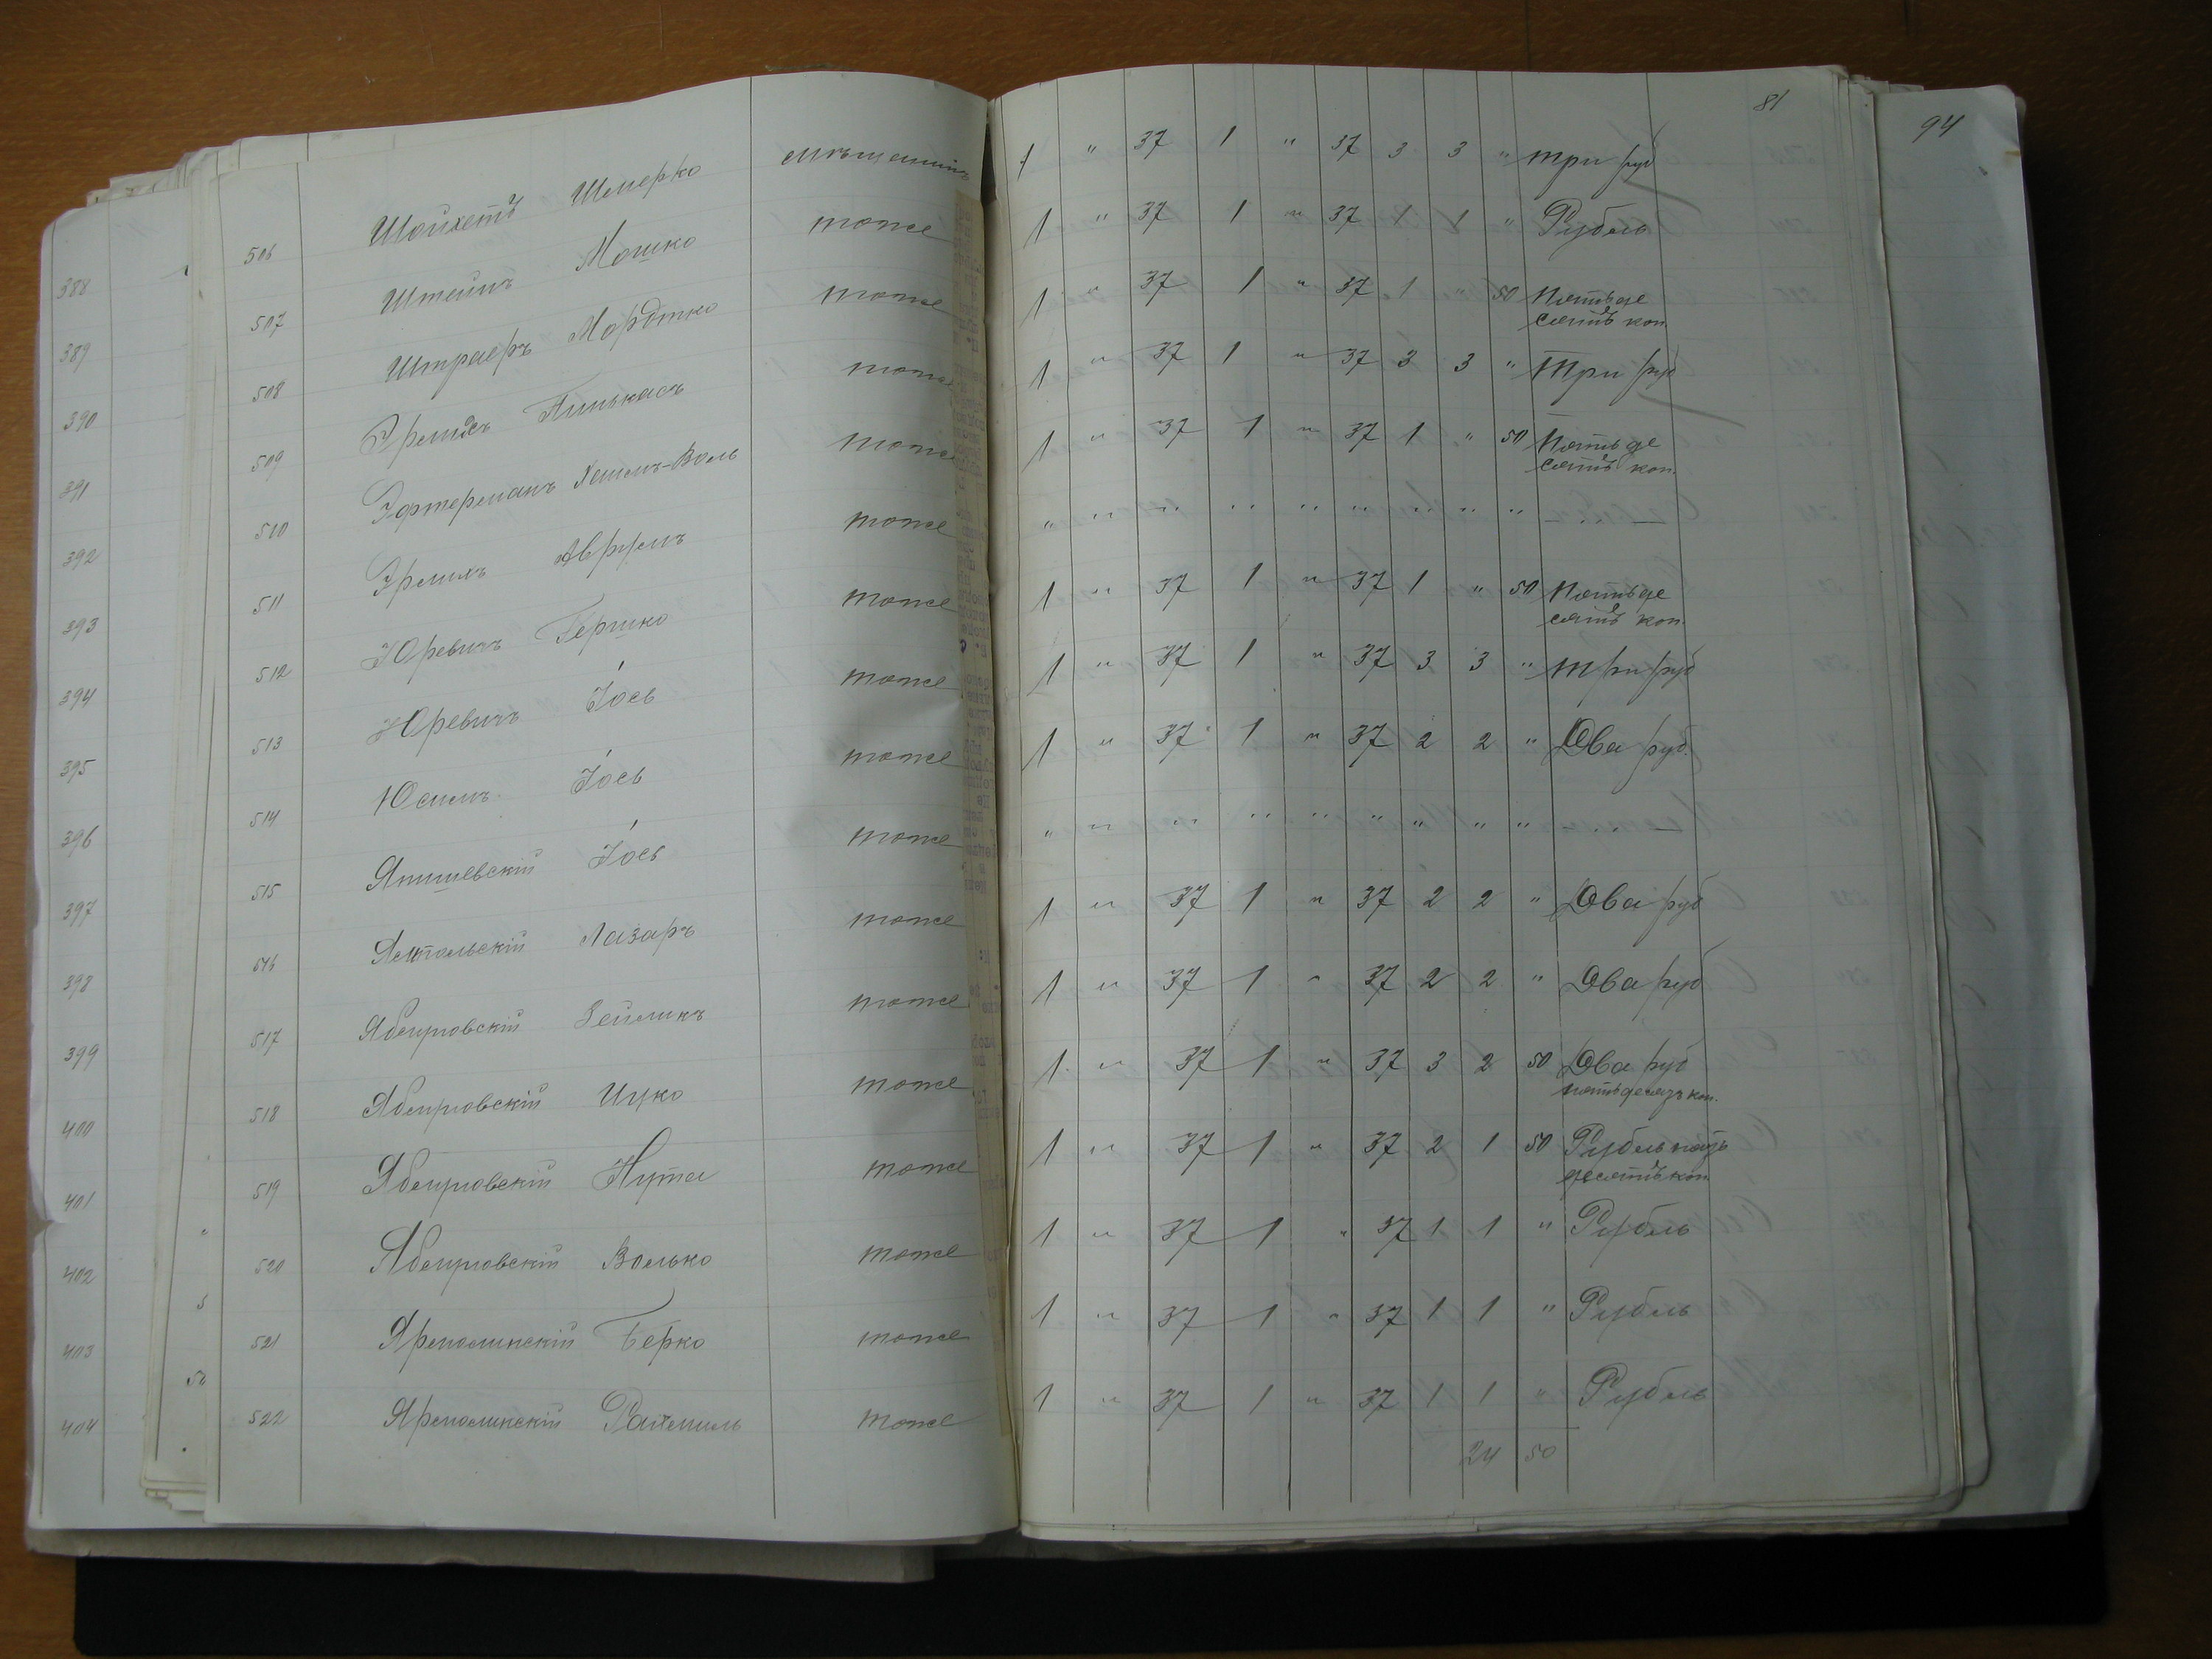 81
94
506 Шойхетъ Шмерко мѣщанинъ 1 " 37 1 " 37 3 3 " три руб
507 Штейнъ Мошко тоже 1 " 37 1 " 37 1 1 " Рубль
508 Штраеръ Мордтко тоже 1 " 37 1 " 37 1 " 50 Пятьде
сятъ коп.
509 Пинькасъ тоже 1 " 37 1 " 37 3 3 " Три руб
510 Эфтерманъ Хаимъ-Воль тоже 1 " 37 1 " 37 1 " 50 Пятьде
сятъ коп.
511 Эрлихъ Аврумъ тоже " " " " " " " " " — " —
512 Юревичъ Гершко тоже 1 " 37 1 " 37 1 " 50 Пятьде
сятъ коп.
513 Юревичъ Іось тоже 1 " 37 1 " 37 3 3 " три руб
514 Юсимъ Іось тоже 1 " 37 1 " 37 2 2 " Два руб.
515 Янишевскій Іось тоже " " " " " " " " " — " —
516 Ямпольскій Лазарь тоже 1 " 37 1 " 37 2 2 " Два руб
517 Зейликъ тоже 1 " 37 1 " 37 2 2 " Два руб
518 Ицко тоже 1 " 37 1 " 37 3 2 50 Два руб
пятьдесятъ коп.
519 Нута тоже 1 " 37 1 " 37 2 1 50 Рубль пять
десятъ коп
520 Волько тоже 1 " 37 1 " 37 1 1 " Рубль
521 Ярмолинскій Берко тоже 1 " 37 1 " 37 1 1 " Рубль
522 Ярмолинскій Рахмиль тоже 1 " 37 1 " 37 1 1 " Рубль
24 50
388
389
390
391
392
393
394
395
396
397
398
399
400
401
402
403
404